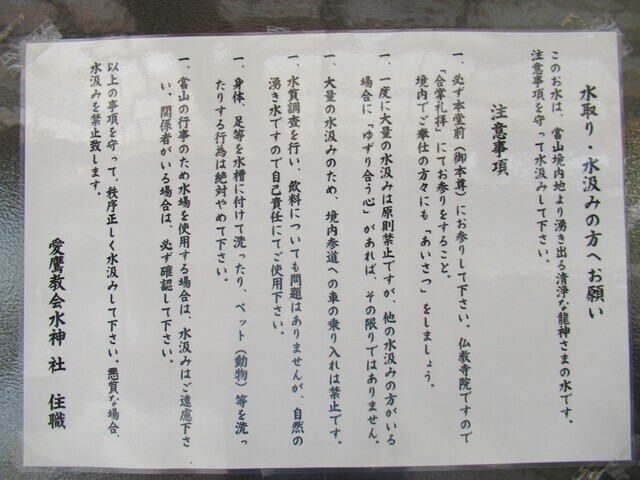 水取り・水汲みの方へお願い
このお水は、當山境内地より湧き出る清浄な龍神さまの水です。
注意事項を守って水汲みして下さい。
注意事項
一、必ず本堂前（御本尊）にお参りして下さい。仏教寺院ですので
「合掌礼拝」にてお参りをすること。
境内でご奉仕の方々にも「あいさつ」をしましょう。
一、一度に大量の水汲みは原則禁止ですが、他の水汲みの方がいる
場合に「ゆずり合う心」があれば、その限りではありません。
一、大量の水汲みのため、境内参道への車の乗り入れは禁止です。
一、水質調査を行い、飲料についても問題はありませんが、自然の
湧き水ですので自己責任にてご使用下さい。
一、身体、足等を水槽に付けて洗ったり、ペット（動物）等を洗っ
たりする行為は絶対やめて下さい。
一、當山の行事のため水場を使用する場合は、水汲みはご遠慮下さ
い。関係者がいる場合は、必ず確認して下さい。
以上の事項を守って、秩序正しく水汲みして下さい。悪質な場合、
水汲みを禁止致します。
愛鷹教会水神社 住職